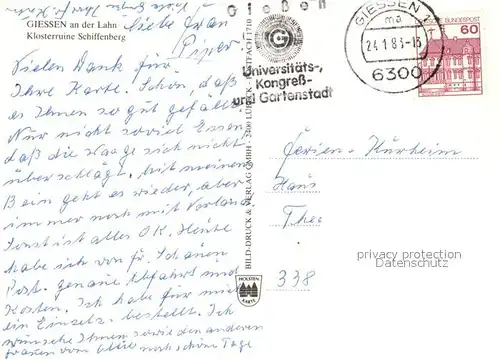 GIESSEN an der Lahn
Klosterruine Schiffenberg
Liebe Frau
Piper
Vielen Dank für
Ihre Karte. Schön, daß
es Ihnen so gut gefällt.
Nur nicht soviel Essen
daß die Waage sich nicht
überschlägt. Mit meinem
Bein geht es wieder, aber
immer noch mit Verband.
Sonst ist alles OK. Heute
habe ich von
Post. genaue Abfahrt und
Kosten. Ich habe für mich
ein Einzelz. bestellt. Ich
wünsche Ihnen sowie den anderen
Frauen noch schöne Tage
BILD-DRUCK & VERLAG GMBH · 2400 LÜBECK · POSTFACH 1710
HOLSTEN
KARTE
Gießen
G
Universitäts-,
Kongreß-
und Gartenstadt
GIESSEN 2
ma
24.1.83-18
6300
DEUTSCHE BUNDESPOST
60
Ferien-Kurheim
Haus
Thee
338
privacy protection
Datenschutz